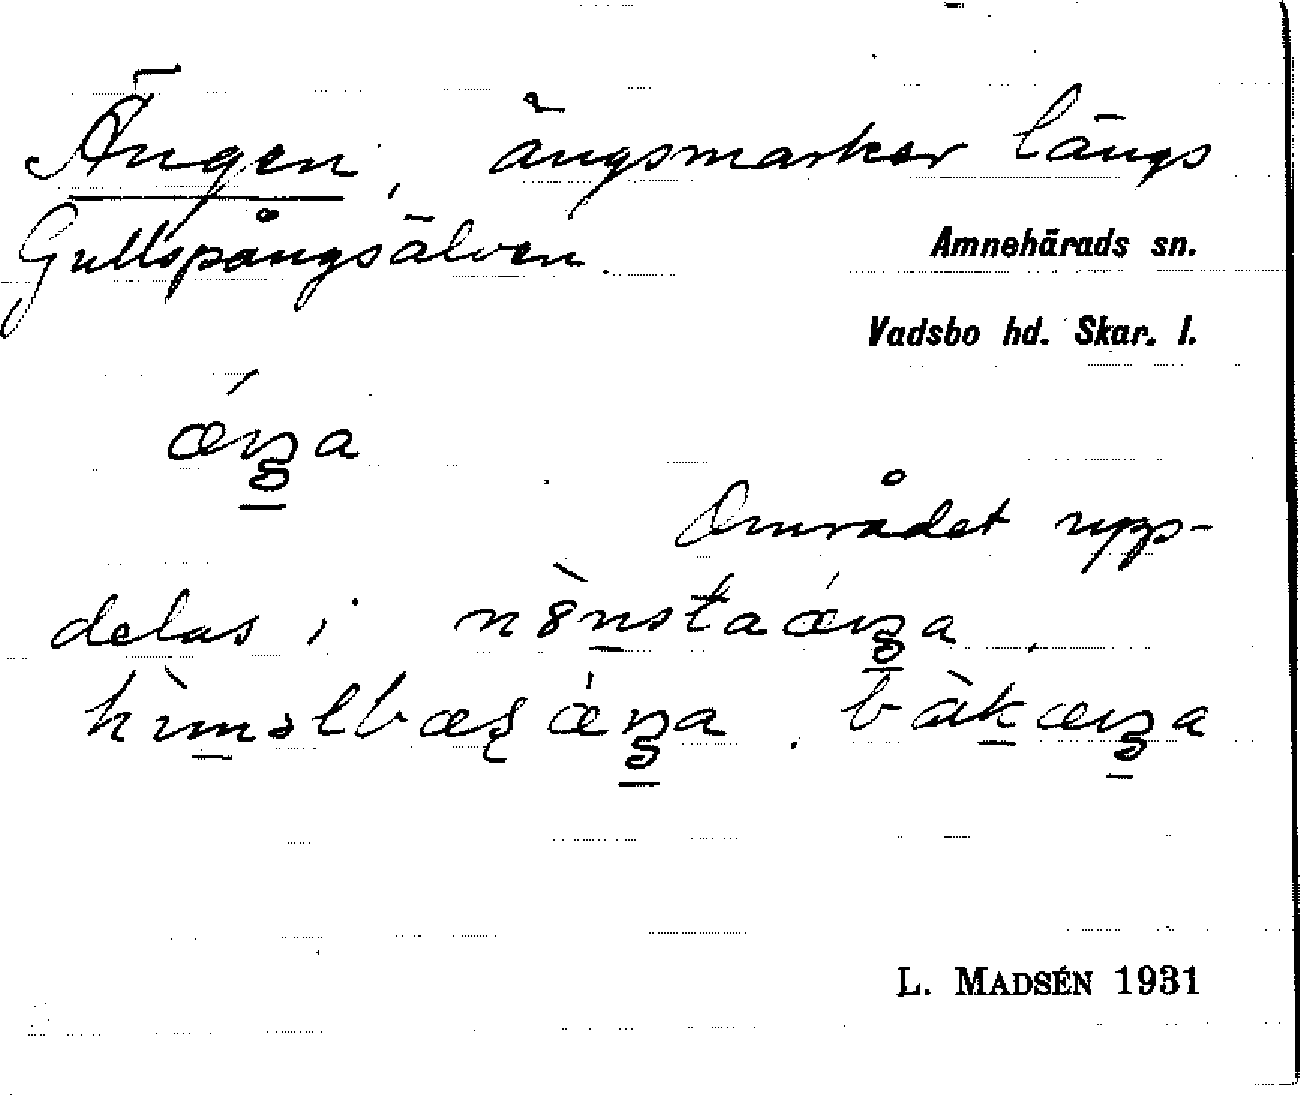 Ängen, ängsmarker längs
Gullspångsälven
Amnehärads sn.
Vadsbo hd. Skar. l.
ǽŋa
Området upp-
delas i n8̀nstaǽŋa,
hìməlbæȿǽŋa, bàkæŋa
L. MADSÉN 1931